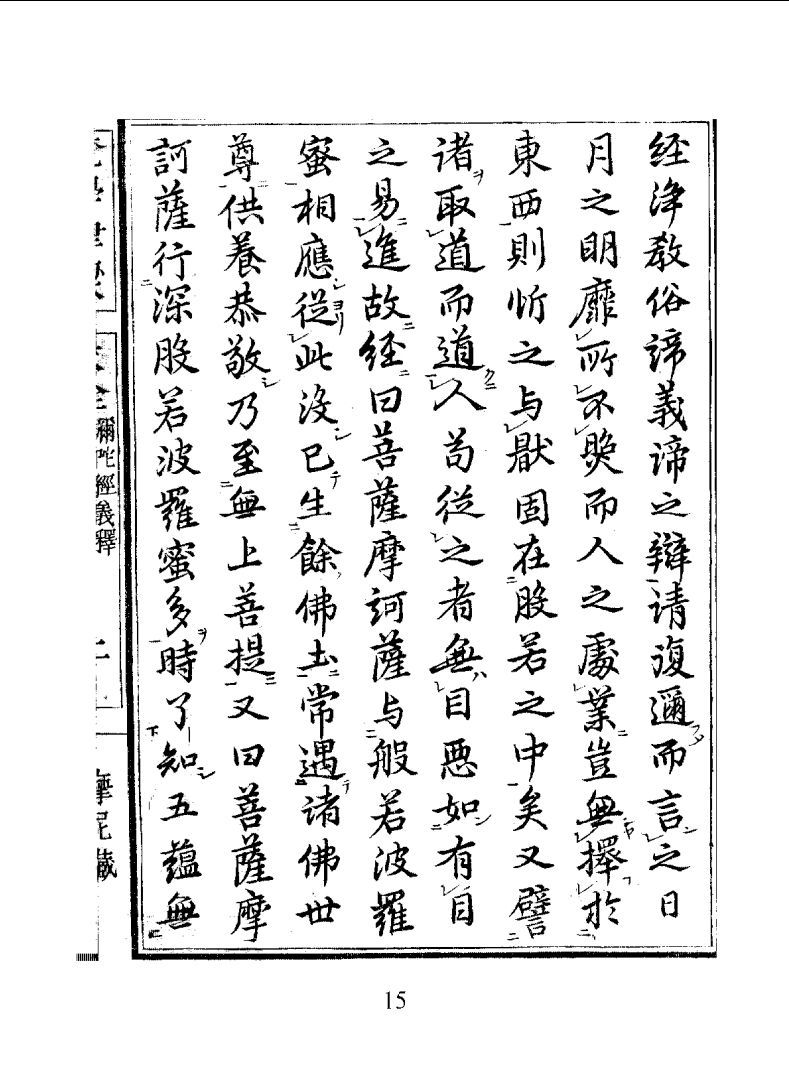 経淨教俗諦義諦之辯请復邇而言之日
月之明靡所不暎而人之處業豈無擇於
東西則忻之与猒固在般若之中矣又譬
诸取道而道人苟從之者無目惡如有目
之易進故経曰菩薩摩訶薩与般若波羅
蜜相應從此没已生餘佛土常遇诸佛世
尊供養恭敬乃至無上菩提又曰菩薩摩
訶薩行深般若波羅蜜多時了知五蘊無
彌陀經義釋
二
15